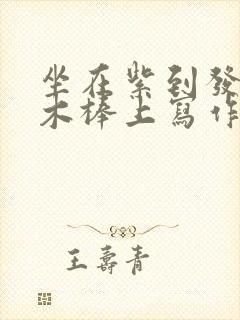 坐在紫到發
木棒上寫作
王壽青